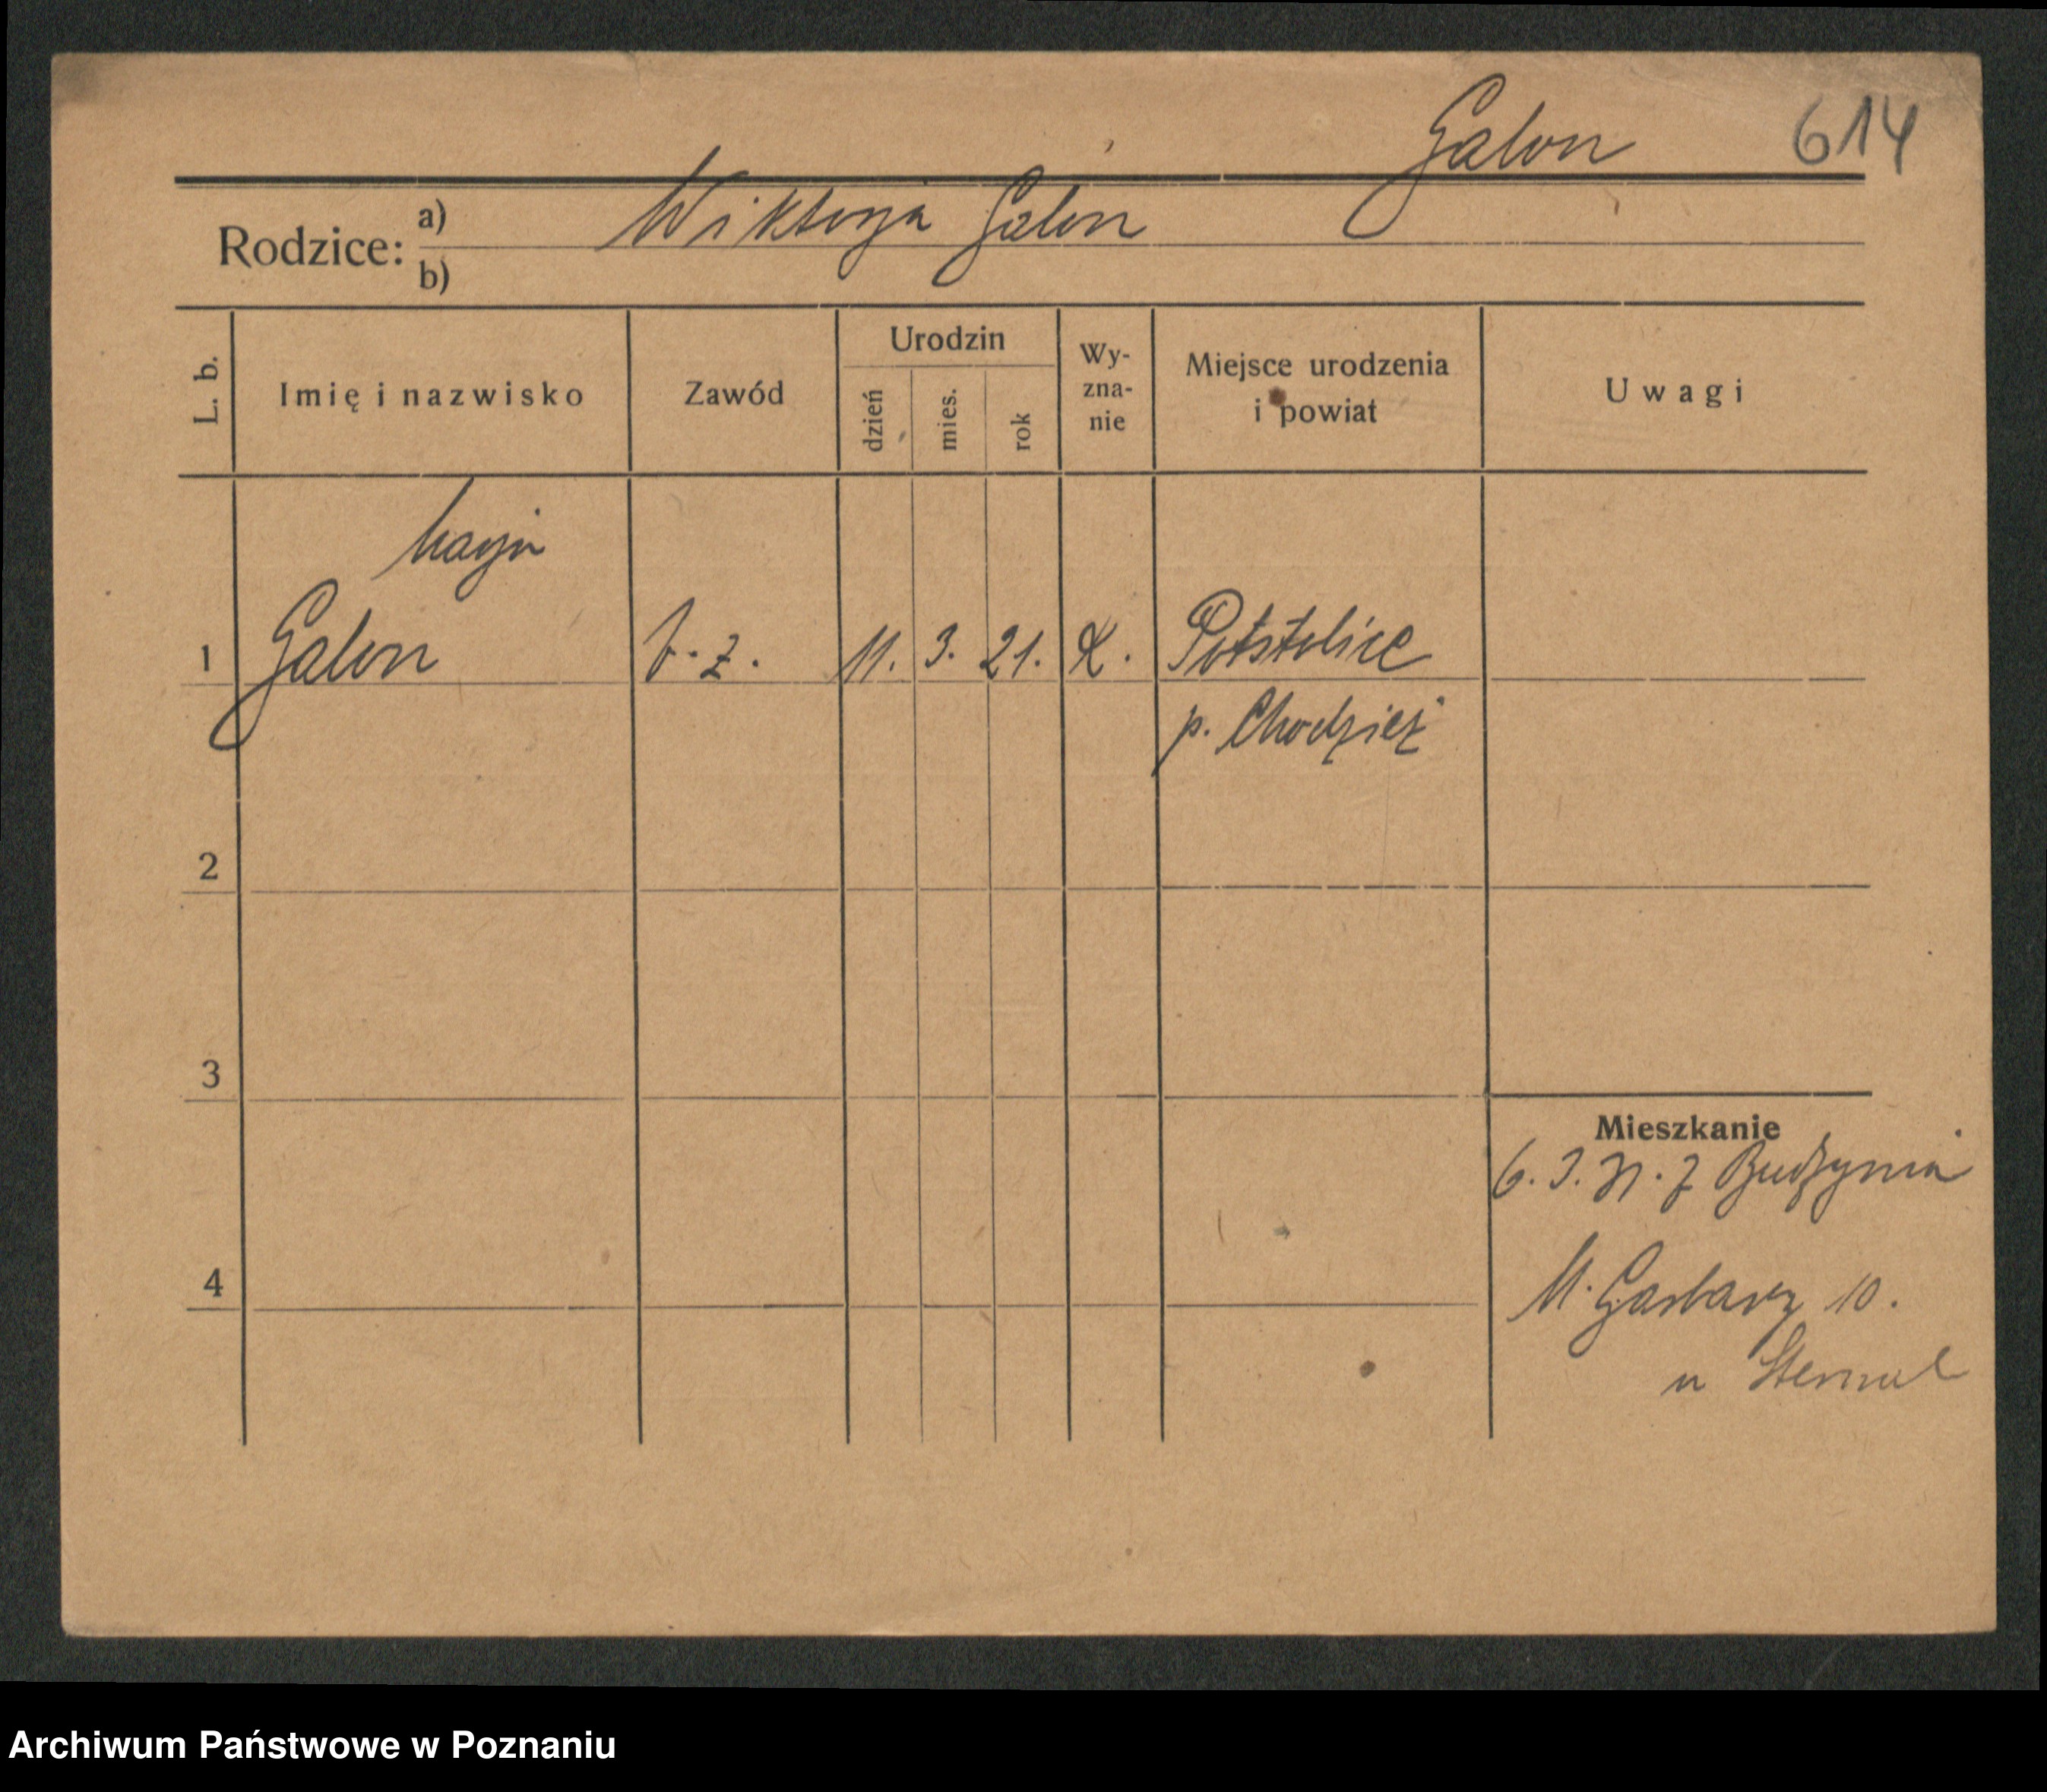 Galon 614
Rodzice: a) Wiktorja Galon
b)
L. b. Imię i nazwisko Zawód Urodzin dzień mies. rok Wy-zna-nie Miejsce urodzenia i powiat Uwagi
Marja
1 Galon b. z. 11. 3. 21. K. Potstolice
p. Chodzież
2
3
Mieszkanie
6. 3. z Budzynia
4 M. Garbary 10.
u
Archiwum Państwowe w Poznaniu